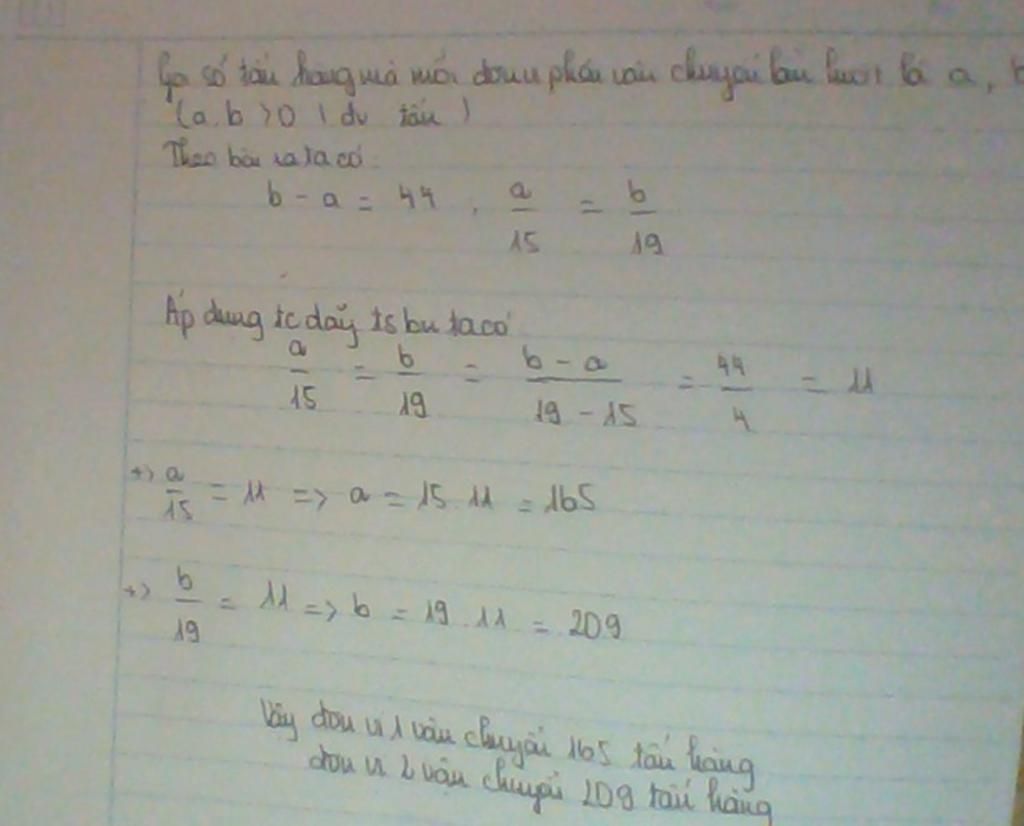 Gọi số tấn hàng mà mỗi đơn vị phải vận chuyển lần lượt là a, b
(a, b > 0 | đv tấn)
Theo bài ra ta có:
b - a = 44 , a/15 = b/19
Áp dụng tc dãy ts bn ta có
a/15 = b/19 = b - a/19 - 15 = 44/4 = 11
+> a/15 = 11 => a = 15 . 11 = 165
+> b/19 = 11 => b = 19 . 11 = 209
Vậy đơn vị 1 vận chuyển 165 tấn hàng
đơn vị 2 vận chuyển 209 tấn hàng